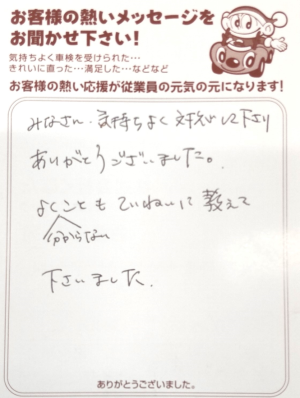 お客様の熱いメッセージを
お聞かせ下さい!
気持ちよく車検を受けられた…
きれいに直った…満足した…などなど
お客様の熱い応援が従業員の元気の元になります!
みなさん、気持ちよく対応して下さり
ありがとうございました。
よくことも ていねいに教えて
分からない
下さいました.
ありがとうございました。